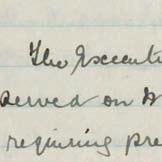 The Executi
served on
requiring pre